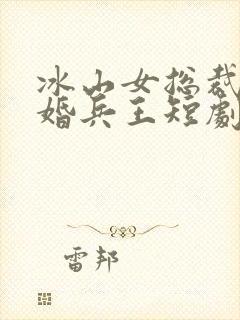 冰山女总裁
婚兵王短劇
雷邦